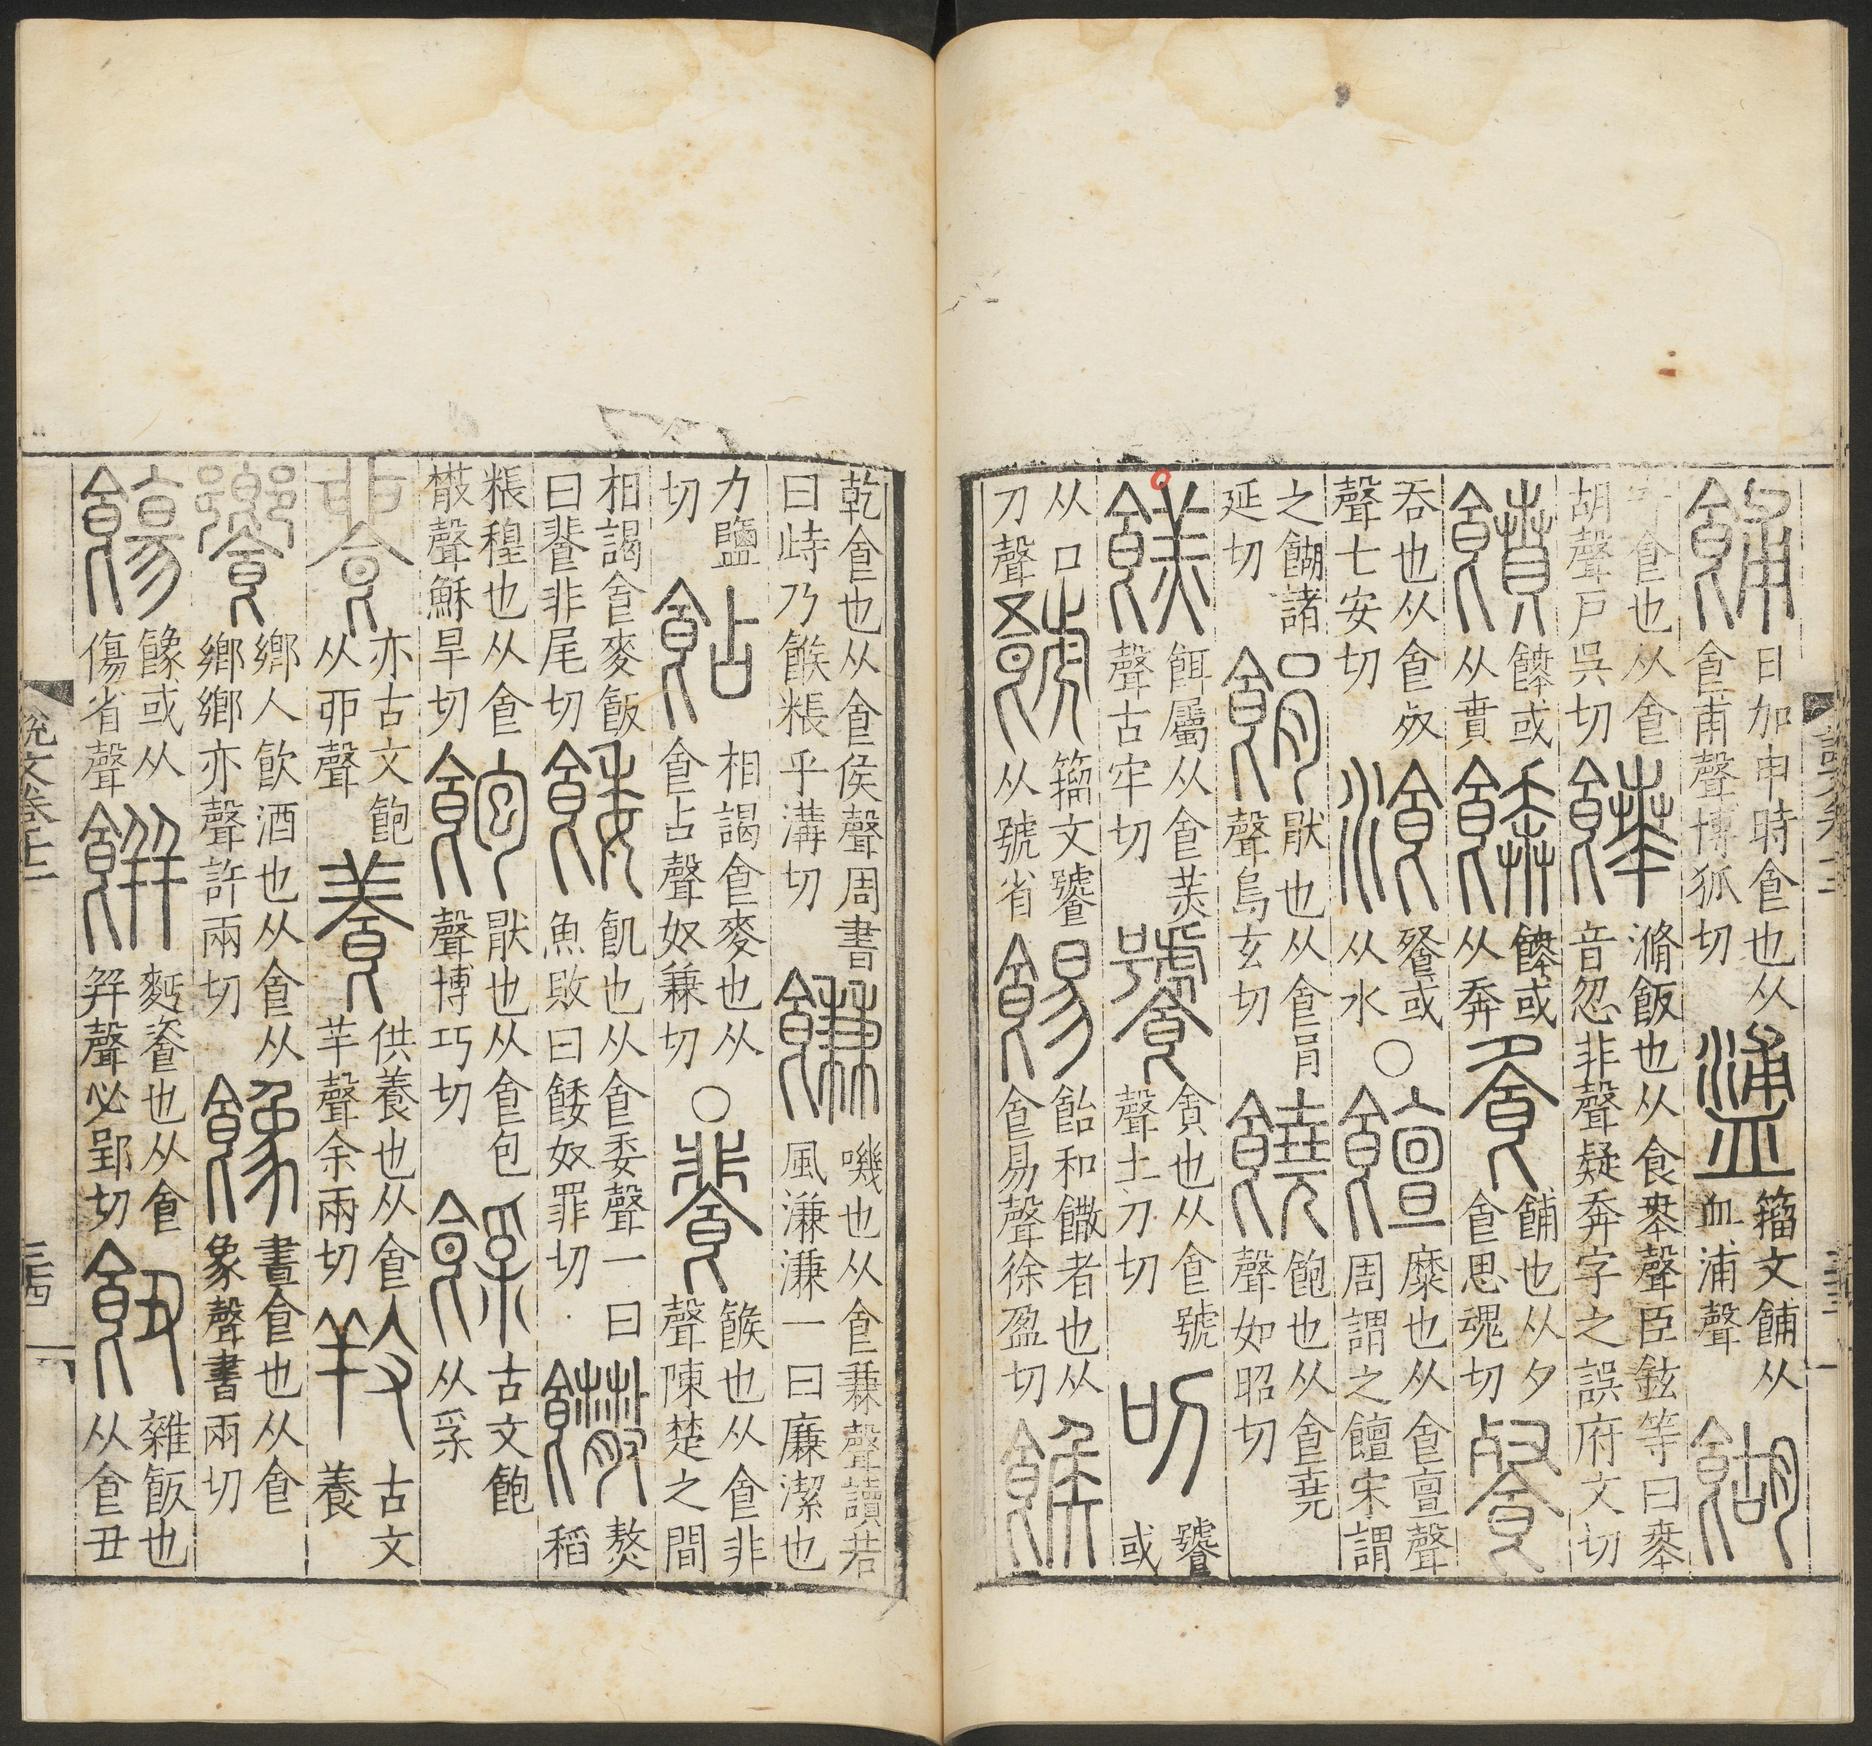 餔日加申時食也从食甫聲博狐切𥂈籀文餔从皿浦聲餬
寄食也从食胡聲戶吳切𩞁滫飯也从食𠦪聲臣鉉等曰𠦪音忽非聲疑奔字之誤府文切
饙𩞁或从賁餴𩞁或从奔飧餔也从夕食思魂切餐
吞也从食𣦼聲七安切湌餐或从水○饘糜也从食亶聲周謂之饘宋謂
之餬諸延切䬼猒也从食肙聲烏玄切饒飽也从食堯聲如昭切
䬺餌屬从食羙聲古牢切饕貪也从食號聲土刀切叨饕或
从口刀聲𩜳籀文饕从號省餳飴和饊者也从食易聲徐盈切䭑
說文卷十二
三十三
乾食也从食矦聲周書曰峙乃餱粻乎溝切䭑嘰也从食兼聲讀若風溓溓一曰廉潔也
力鹽切䬯相謁食麥也从食占聲奴兼切○餥餱也从食非聲陳楚之間
相謁食麥飯曰餥非尾切餧飢也从食委聲一曰魚敗曰餧奴罪切饊熬稻
粻䅣也从食㪔聲穌旱切飽猒也从食包聲博巧切𩚭古文飽从孚
𩛼亦古文飽从戼聲養供養也从食羊聲余兩切羏古文養
饗鄉人飲酒也从食从鄉鄉亦聲許兩切饟晝食也从食象聲書兩切
䬾饟或从傷省聲䭀麪餈也从食幷聲必郢切飷雜飯也从食丑
說文卷十二
三十四